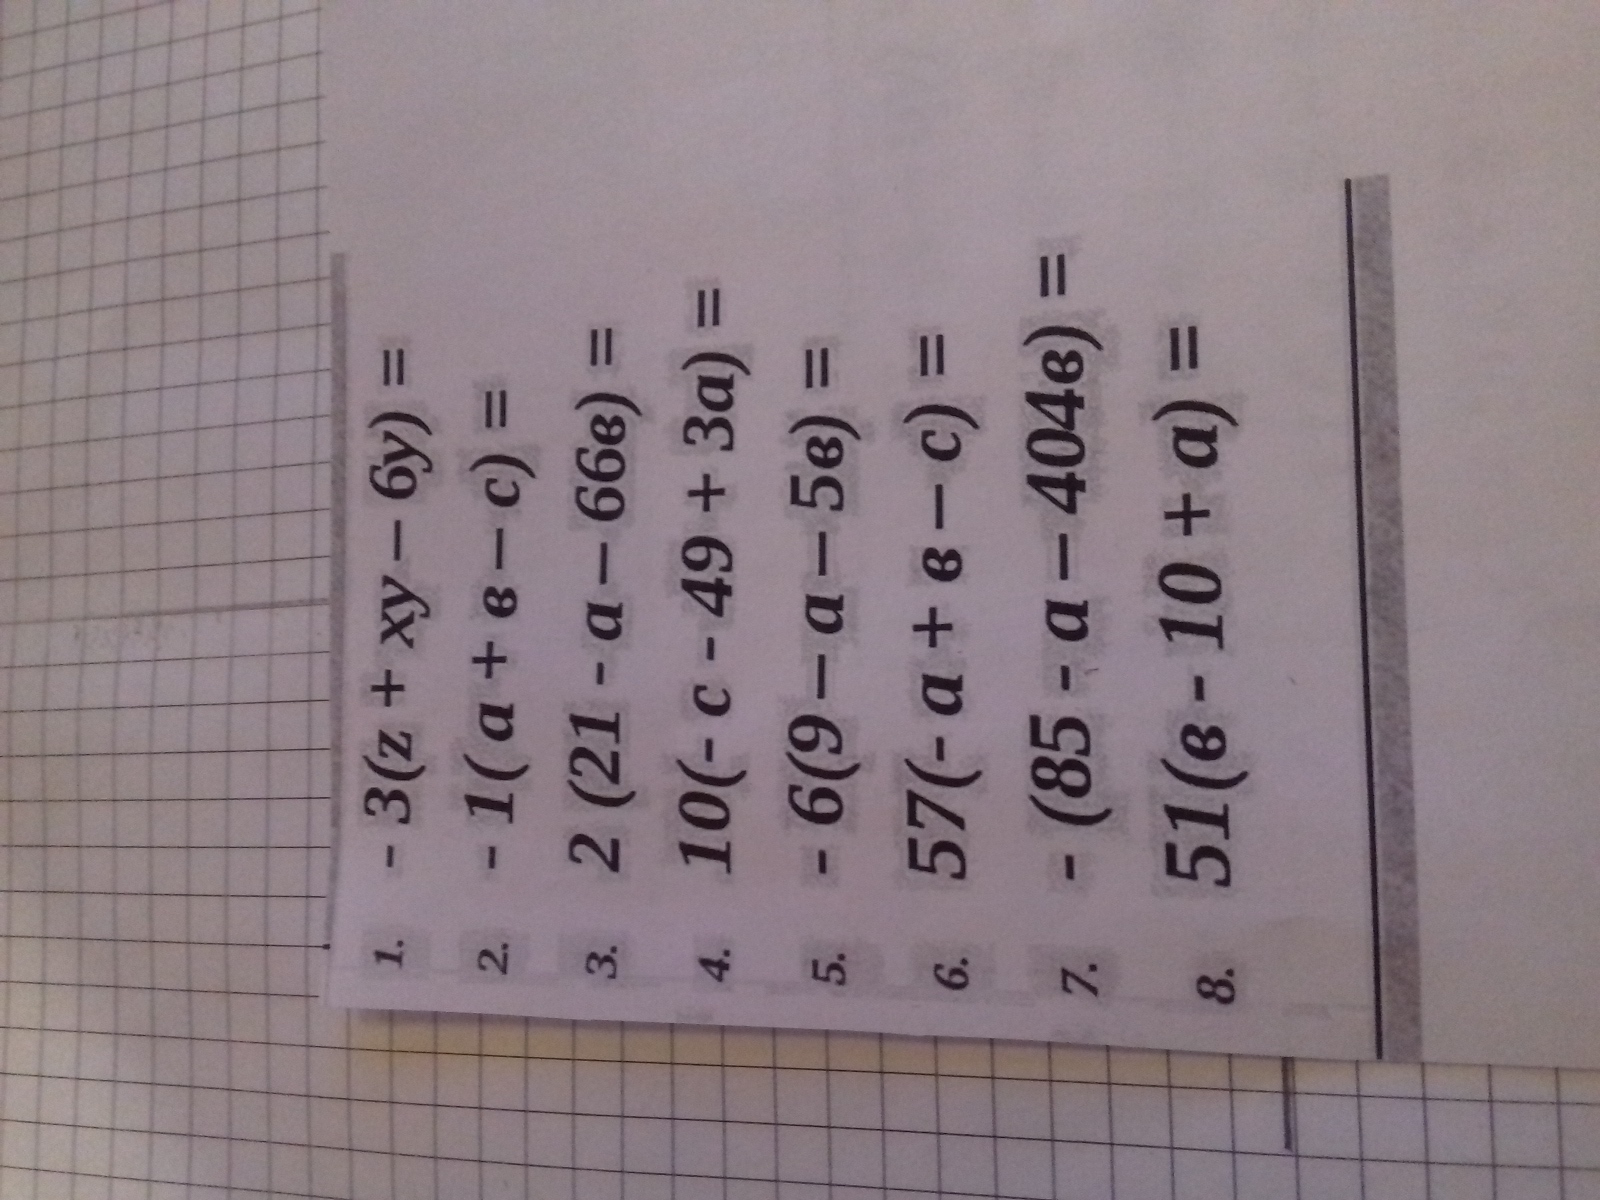 1. - 3(z + xy – 6y) =
2. - 1( a + в – c) =
3. 2 (21 - a – 66в) =
4. 10(- c - 49 + 3a) =
5. - 6(9 – a – 5в) =
6. 57(- a + в – c) =
7. - (85 - a – 404в) =
8. 51(в - 10 + a) =